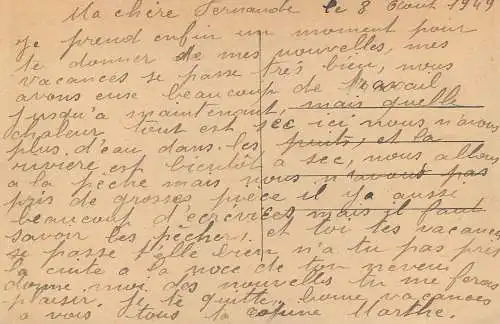 Ma chère Fernande le 8 Août 1949
je prend enfin un moment pour
te donner de mes nouvelles, mes
vacances se passe très bien, nous
avons eue beaucoup de travail
jusqu'a maintenant, mais quelle
chaleur tout est sec ici nous n'avons
plus d'eau dans les puits, et la
rivière est bientôt a sec, nous allons
a la pêche mais nous n'avons pas
pris de grosses pièce il ya aussi
beaucoup d'ecrevices mais il faut
savoir les pêcher, et toi tes vacances
se passe t'elle bien n'a tu pas pris
la cuite a la noce de ton neveu
donne moi des nouvelles tu me feras
plaisir. Je te quitte, bonne vacances
a vous tous ta copine Marthe.